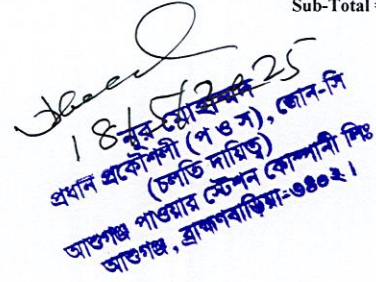 Sub-Total =
18/5/2025
নূর মোহাম্মদ
প্রধান প্রকৌশলী (প ও স), জোন-সি
(চলতি দায়িত্ব)
আশুগঞ্জ পাওয়ার স্টেশন কোম্পানী লিঃ
আশুগঞ্জ, ব্রাহ্মণবাড়িয়া-৩৪০২।